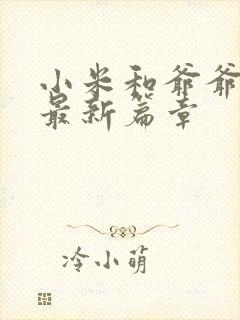 小米和爷爷
最新篇章
冷小萌